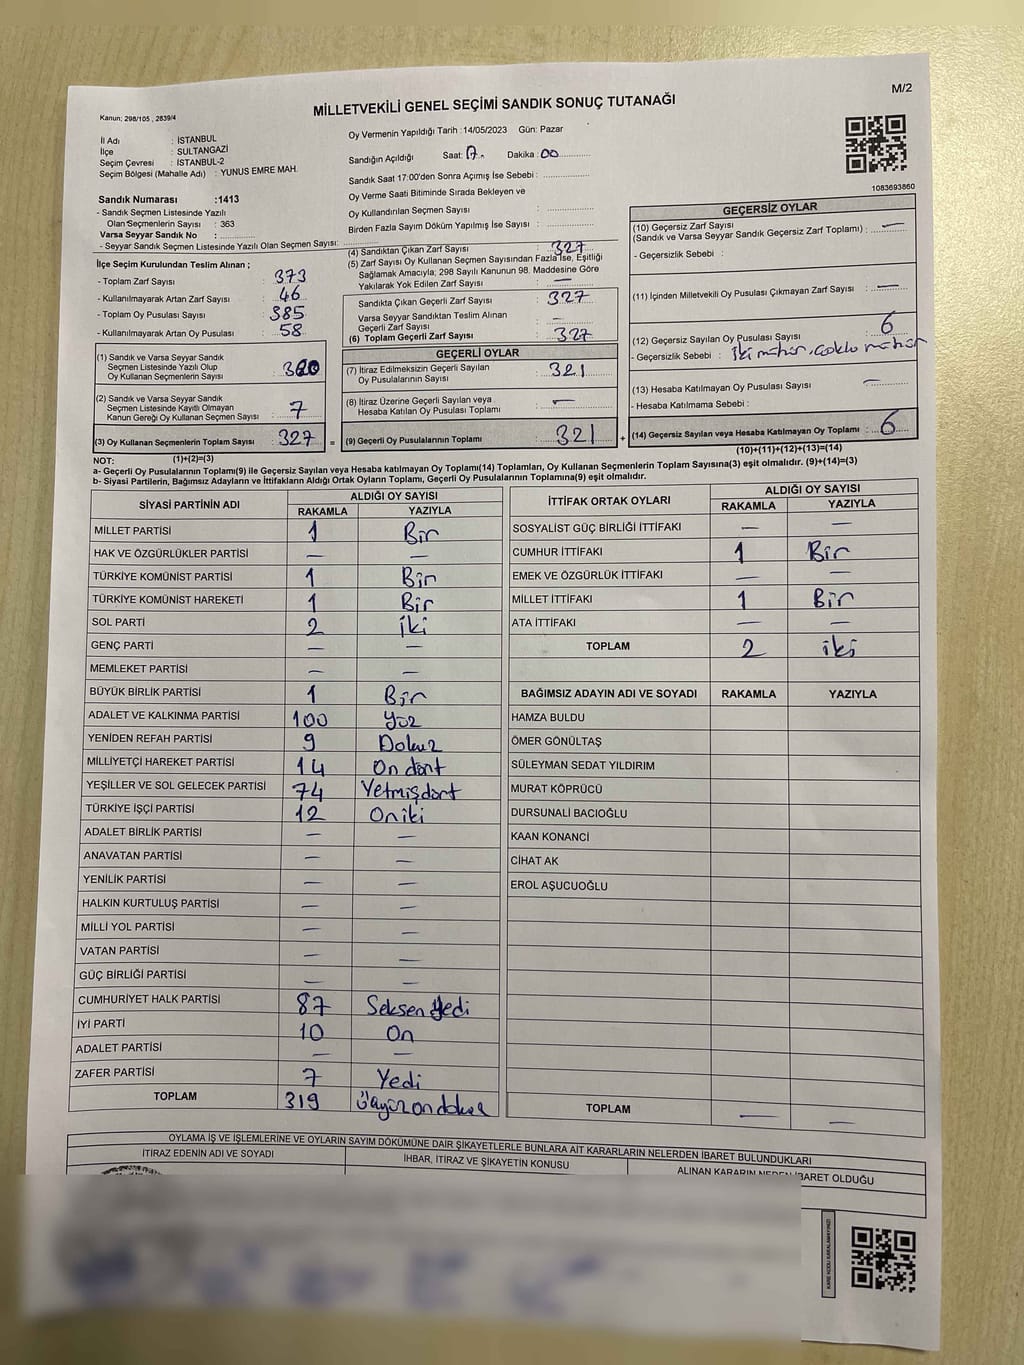 M/2
MİLLETVEKİLİ GENEL SEÇİMİ SANDIK SONUÇ TUTANAĞI
Kanun; 298/105 , 2839/4
İl Adı : İSTANBUL
İlçe : SULTANGAZİ
Seçim Çevresi : İSTANBUL-2
Seçim Bölgesi (Mahalle Adı) : YUNUS EMRE MAH.
Sandık Numarası :1413
- Sandık Seçmen Listesinde Yazılı
Olan Seçmenlerin Sayısı : 363
Varsa Seyyar Sandık No :
- Seyyar Sandık Seçmen Listesinde Yazılı Olan Seçmen Sayısı:
Oy Vermenin Yapıldığı Tarih :14/05/2023 Gün: Pazar
Sandığın Açıldığı Saat: 17. Dakika 00
Sandık Saat 17:00'den Sonra Açımış İse Sebebi :
Oy Verme Saati Bitiminde Sırada Bekleyen ve
Oy Kullandırılan Seçmen Sayısı :
Birden Fazla Sayım Döküm Yapılmış İse Sayısı :
1083693860
İlçe Seçim Kurulundan Teslim Alınan ;
- Toplam Zarf Sayısı : 373
- Kullanılmayarak Artan Zarf Sayısı : 46
- Toplam Oy Pusulası Sayısı : 385
- Kullanılmayarak Artan Oy Pusulası : 58
(1) Sandık ve Varsa Seyyar Sandık
Seçmen Listesinde Yazılı Olup
Oy Kullanan Seçmenlerin Sayısı : 320
(2) Sandık ve Varsa Seyyar Sandık
Seçmen Listesinde Kayıtlı Olmayan
Kanun Gereği Oy Kullanan Seçmen Sayısı : 7
(3) Oy Kullanan Seçmenlerin Toplam Sayısı : 327 =
(1)+(2)=(3)
(4) Sandıktan Çıkan Zarf Sayısı : 327
(5) Zarf Sayısı Oy Kullanan Seçmen Sayısından Fazla İse, Eşitliği
Sağlamak Amacıyla; 298 Sayılı Kanunun 98. Maddesine Göre
Yakılarak Yok Edilen Zarf Sayısı : —
Sandıkta Çıkan Geçerli Zarf Sayısı : 327
Varsa Seyyar Sandıktan Teslim Alınan
Geçerli Zarf Sayısı : —
(6) Toplam Geçerli Zarf Sayısı : 327
GEÇERLİ OYLAR
(7) İtiraz Edilmeksizin Geçerli Sayılan
Oy Pusulalarının Sayısı : 321
(8) İtiraz Üzerine Geçerli Sayılan veya
Hesaba Katılan Oy Pusulası Toplamı : —
(9) Geçerli Oy Pusulalarının Toplamı : 321 +
GEÇERSİZ OYLAR
(10) Geçersiz Zarf Sayısı
(Sandık ve Varsa Seyyar Sandık Geçersiz Zarf Toplamı) : —
- Geçersizlik Sebebi :
(11) İçinden Milletvekili Oy Pusulası Çıkmayan Zarf Sayısı : —
(12) Geçersiz Sayılan Oy Pusulası Sayısı : 6
- Geçersizlik Sebebi : İki mühür, çoklu mühür
(13) Hesaba Katılmayan Oy Pusulası Sayısı : —
- Hesaba Katılmama Sebebi :
(14) Geçersiz Sayılan veya Hesaba Katılmayan Oy Toplamı : 6
(10)+(11)+(12)+(13)=(14)
NOT:
a- Geçerli Oy Pusulalarının Toplamı(9) ile Geçersiz Sayılan veya Hesaba katılmayan Oy Toplamı(14) Toplamları, Oy Kullanan Seçmenlerin Toplam Sayısına(3) eşit olmalıdır. (9)+(14)=(3)
b- Siyasi Partilerin, Bağımsız Adayların ve İttifakların Aldığı Ortak Oyların Toplamı, Geçerli Oy Pusulalarının Toplamına(9) eşit olmalıdır.
SİYASİ PARTİNİN ADI ALDIĞI OY SAYISI
RAKAMLA YAZIYLA
MİLLET PARTİSİ 1 Bir
HAK VE ÖZGÜRLÜKLER PARTİSİ — —
TÜRKİYE KOMÜNİST PARTİSİ 1 Bir
TÜRKİYE KOMÜNİST HAREKETİ 1 Bir
SOL PARTİ 2 iki
GENÇ PARTİ — —
MEMLEKET PARTİSİ — —
BÜYÜK BİRLİK PARTİSİ 1 Bir
ADALET VE KALKINMA PARTİSİ 100 Yüz
YENİDEN REFAH PARTİSİ 9 Dokuz
MİLLİYETÇİ HAREKET PARTİSİ 14 On dört
YEŞİLLER VE SOL GELECEK PARTİSİ 74 Yetmişdört
TÜRKİYE İŞÇİ PARTİSİ 12 Oniki
ADALET BİRLİK PARTİSİ — —
ANAVATAN PARTİSİ — —
YENİLİK PARTİSİ — —
HALKIN KURTULUŞ PARTİSİ — —
MİLLİ YOL PARTİSİ — —
VATAN PARTİSİ — —
GÜÇ BİRLİĞİ PARTİSİ — —
CUMHURİYET HALK PARTİSİ 87 Seksen Yedi
İYİ PARTİ 10 On
ADALET PARTİSİ — —
ZAFER PARTİSİ 7 Yedi
TOPLAM 319 üçyüz on dokuz
İTTİFAK ORTAK OYLARI ALDIĞI OY SAYISI
RAKAMLA YAZIYLA
SOSYALİST GÜÇ BİRLİĞİ İTTİFAKI — —
CUMHUR İTTİFAKI 1 Bir
EMEK VE ÖZGÜRLÜK İTTİFAKI — —
MİLLET İTTİFAKI 1 Bir
ATA İTTİFAKI — —
TOPLAM 2 iki
BAĞIMSIZ ADAYIN ADI VE SOYADI RAKAMLA YAZIYLA
HAMZA BULDU
ÖMER GÖNÜLTAŞ
SÜLEYMAN SEDAT YILDIRIM
MURAT KÖPRÜCÜ
DURSUNALİ BACIOĞLU
KAAN KONANCİ
CİHAT AK
EROL AŞUCUOĞLU
TOPLAM — —
OYLAMA İŞ VE İŞLEMLERİNE VE OYLARIN SAYIM DÖKÜMÜNE DAİR ŞİKAYETLERLE BUNLARA AİT KARARLARIN NELERDEN İBARET BULUNDUKLARI
İTİRAZ EDENİN ADI VE SOYADI İHBAR, İTİRAZ VE ŞİKAYETİN KONUSU ALINAN KARARIN NEDEN İBARET OLDUĞU
KARE KODU KARALAMAYINIZ!